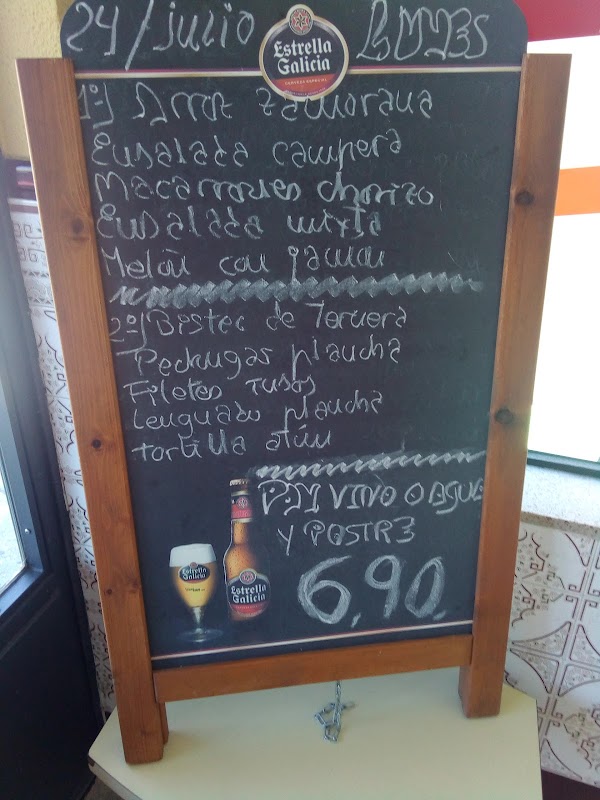 24/julio LUNES
Estrella Galicia
CERVEZA ESPECIAL
1º) Arroz Zamorana
Ensalada campera
Macarrones chorizo
Ensalada mixta
Melón con jamón
2º) Bistec de Ternera
Pechugas plancha
Filetes rusos
lenguado plancha
tortilla atún
PAN VINO O AGUA
Y POSTRE
6,90.
Estrella Galicia
Estrella Galicia